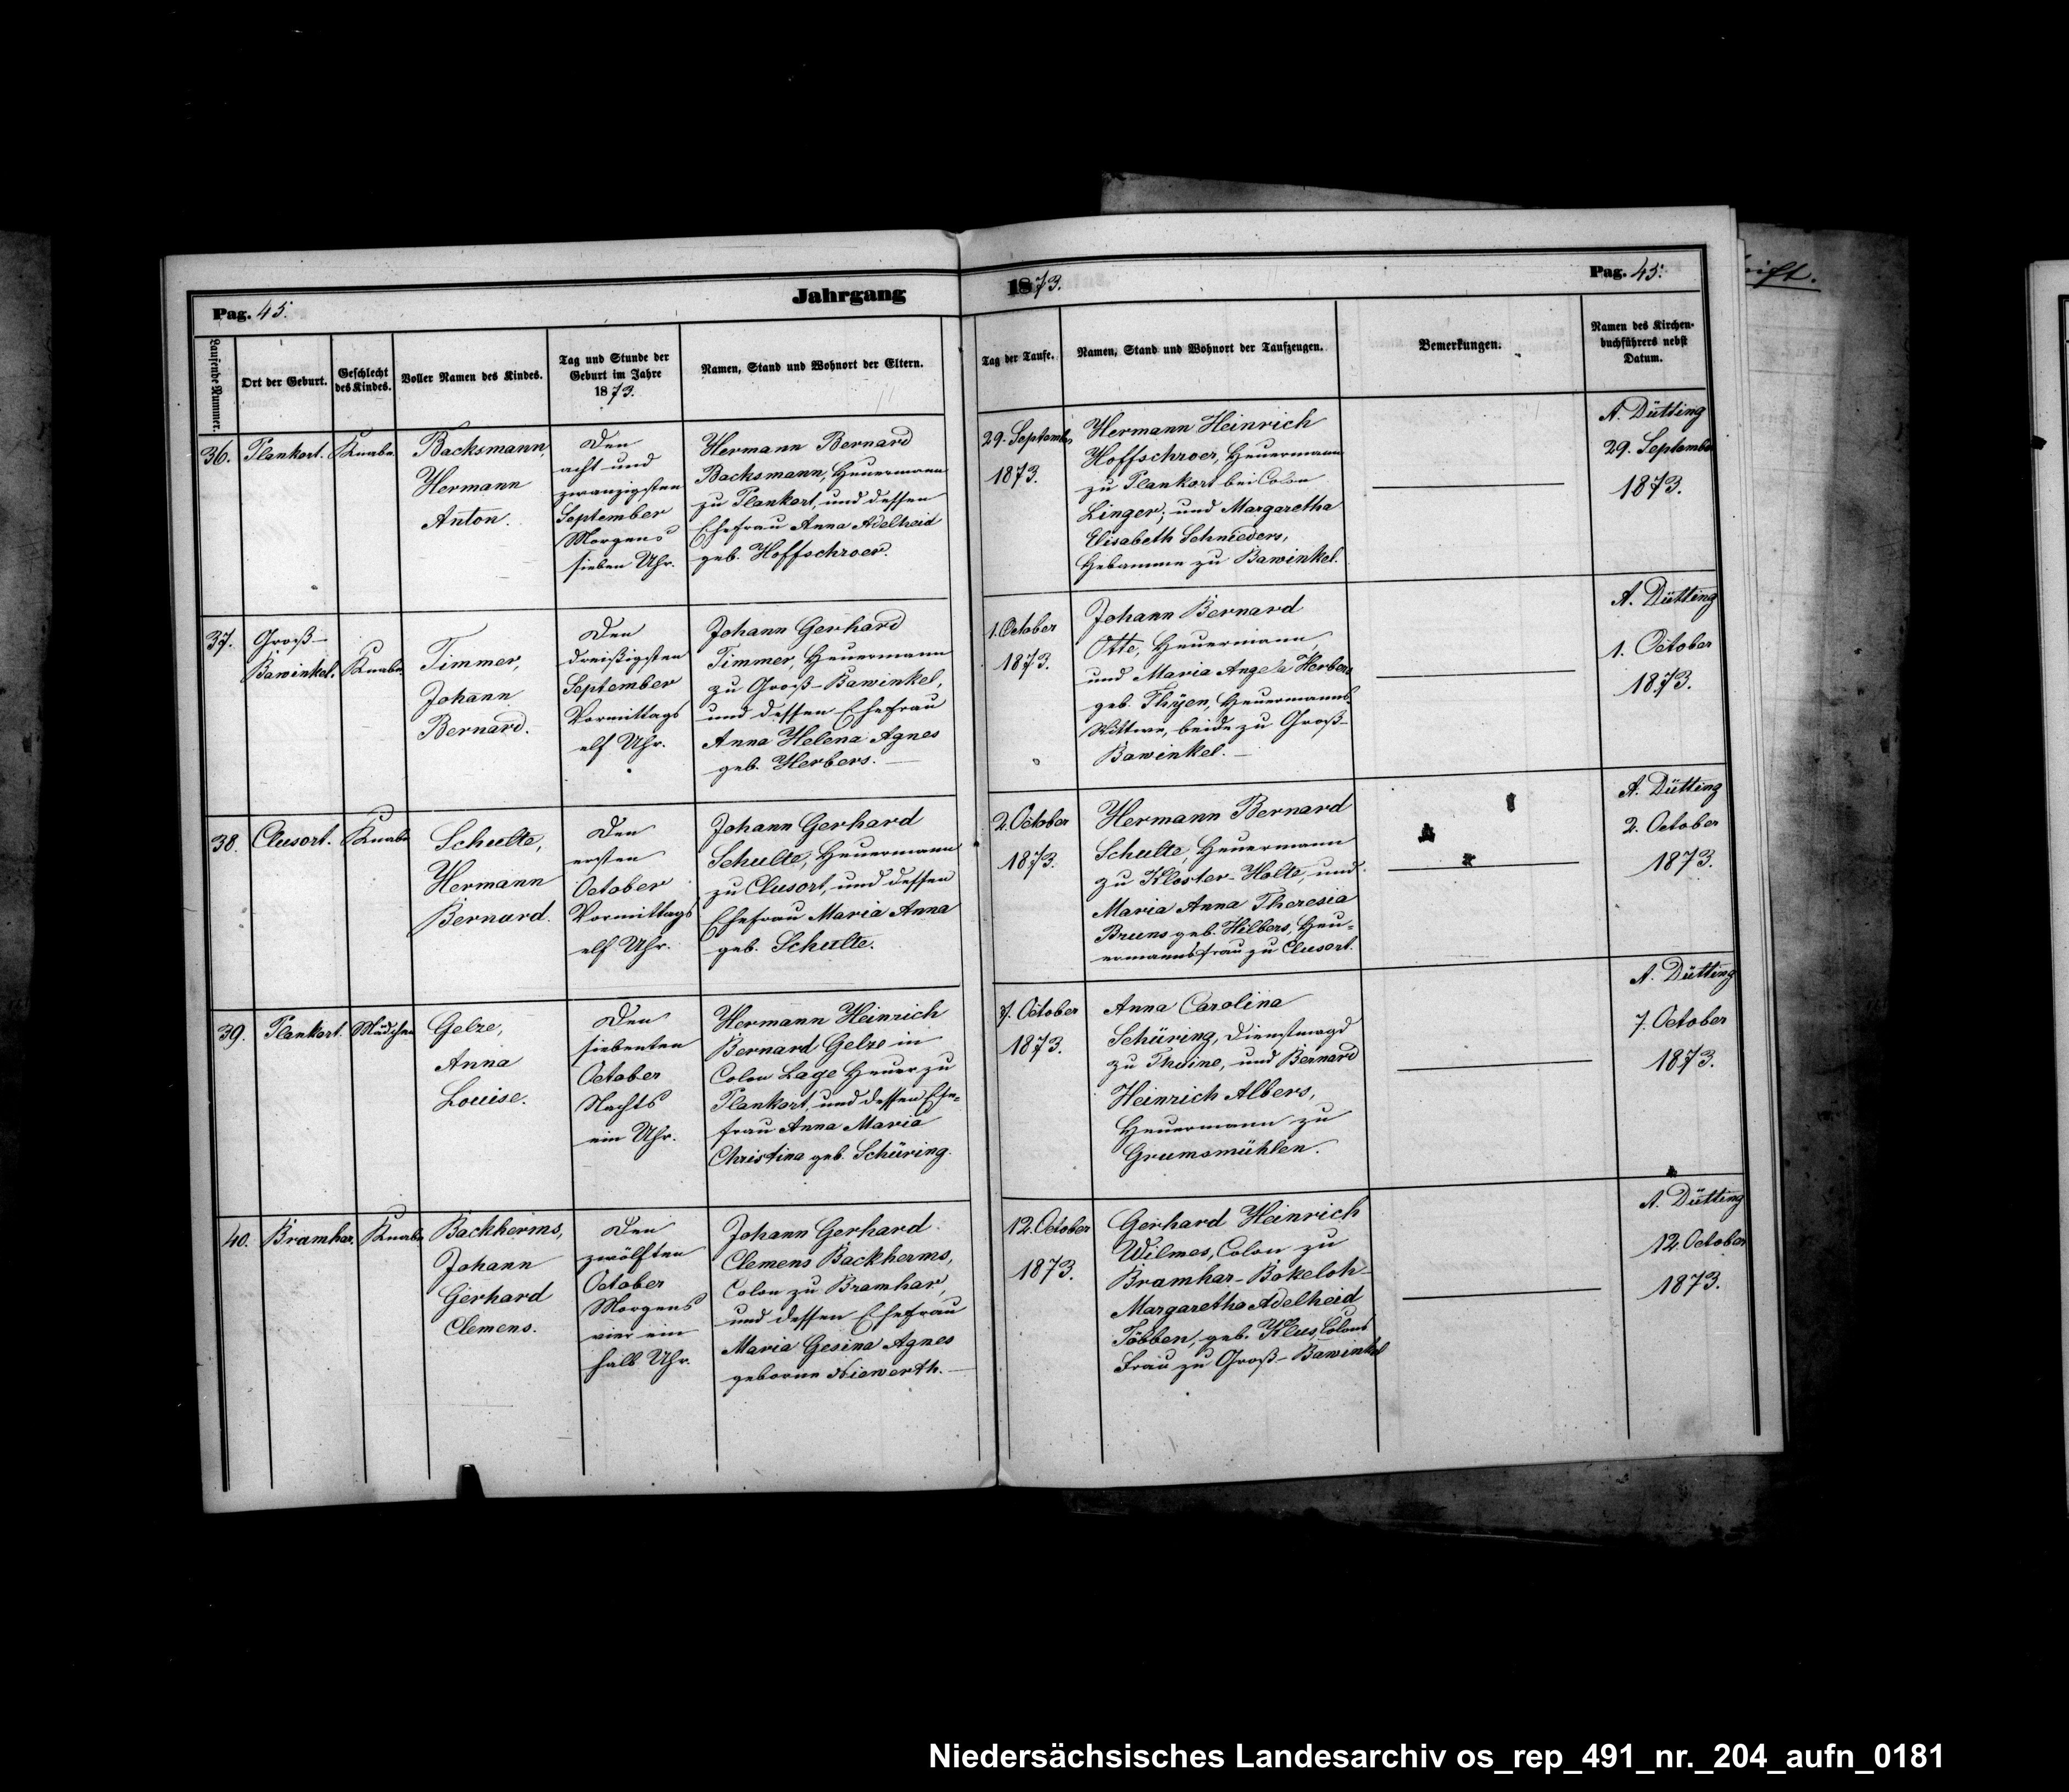 Pag. 45.
Jahrgang
1873.
Pag. 45.
rift.
Laufende Nummer.
Ort der Geburt.
Geschlecht
des Kindes.
Voller Namen des Kindes.
Tag und Stunde der
Geburt im Jahre
1873.
Namen, Stand und Wohnort der Eltern.
Tag der Taufe.
Namen, Stand und Wohnort der Taufzeugen.
Bemerkungen.
Namen des Kirchen-
buchführers nebst
Datum.
36.
Plankort.
Knabe
Backsmann,
Hermann
Anton.
Den
acht und
zwanzigsten
September
Morgens
sieben Uhr.
Hermann Bernard
Backsmann, Heuermann
zu Plankort, und dessen
Ehefrau Anna Adelheid
geb. Hoffschroer.
29. September
1873.
Hermann Heinrich
Hoffschroer, Heuermann
zu Plankort bei Colon
Linger, und Margaretha
Elisabeth Schnieders,
Hebamme zu Bawinkel.
A. Dütting
29. September
1873.
37.
Groß-
Bawinkel.
Knabe
Timmer,
Johann
Bernard.
Den
dreißigsten
September
Vormittags
elf Uhr.
Johann Gerhard
Timmer, Heuermann
zu Groß-Bawinkel,
und dessen Ehefrau
Anna Helena Agnes
geb. Herbers.
1. October
1873.
Johann Bernard
Otte, Heuermann,
und Maria Angela Herbers
geb. Thÿen, Heuermanns
Wittwe, beide zu Groß-
Bawinkel.
A. Dütting
1. October
1873.
38.
Clusort.
Knabe
Schulte,
Hermann
Bernard.
Den
ersten
October
Vormittags
elf Uhr.
Johann Gerhard
Schulte, Heuermann
zu Clusort, und dessen
Ehefrau Maria Anna
geb. Schulte.
2. October
1873.
Hermann Bernard
Schulte, Heuermann
zu Kloster-Holte, und
Maria Anna Theresia
Bruns geb. Hilbers, Heu=
ermannsfrau zu Clusort.
A. Dütting
2. October
1873.
39.
Plankort.
Mädchen
Gelze,
Anna
Louise.
Den
siebenten
October
Nachts
ein Uhr.
Hermann Heinrich
Bernard Gelze in
Colon Lage Heuer zu
Plankort, und dessen Ehe=
frau Anna Maria
Christina geb. Schüring.
7. October
1873.
Anna Carolina
Schüring, Dienstmagd
zu Thuine, und Bernard
Heinrich Albers,
Heuermann zu
Grumsmühlen.
A. Dütting
7. October
1873.
40.
Bramhar.
Knabe
Backherms,
Johann
Gerhard
Clemens.
Den
zwölften
October
Morgens
vier ein
halb Uhr.
Johann Gerhard
Clemens Backherms,
Colon zu Bramhar,
und dessen Ehefrau
Maria Gesina Agnes
geborne Niewerth.
12. October
1873.
Gerhard Heinrich
Wilmes, Colon zu
Bramhar-Bokeloh-
Margaretha Adelheid
Többen, geb. Klus, Colons
Frau zu Groß-Bawinkel
A. Dütting
12. October
1873.
Niedersächsisches Landesarchiv os_rep_491_nr._204_aufn_0181